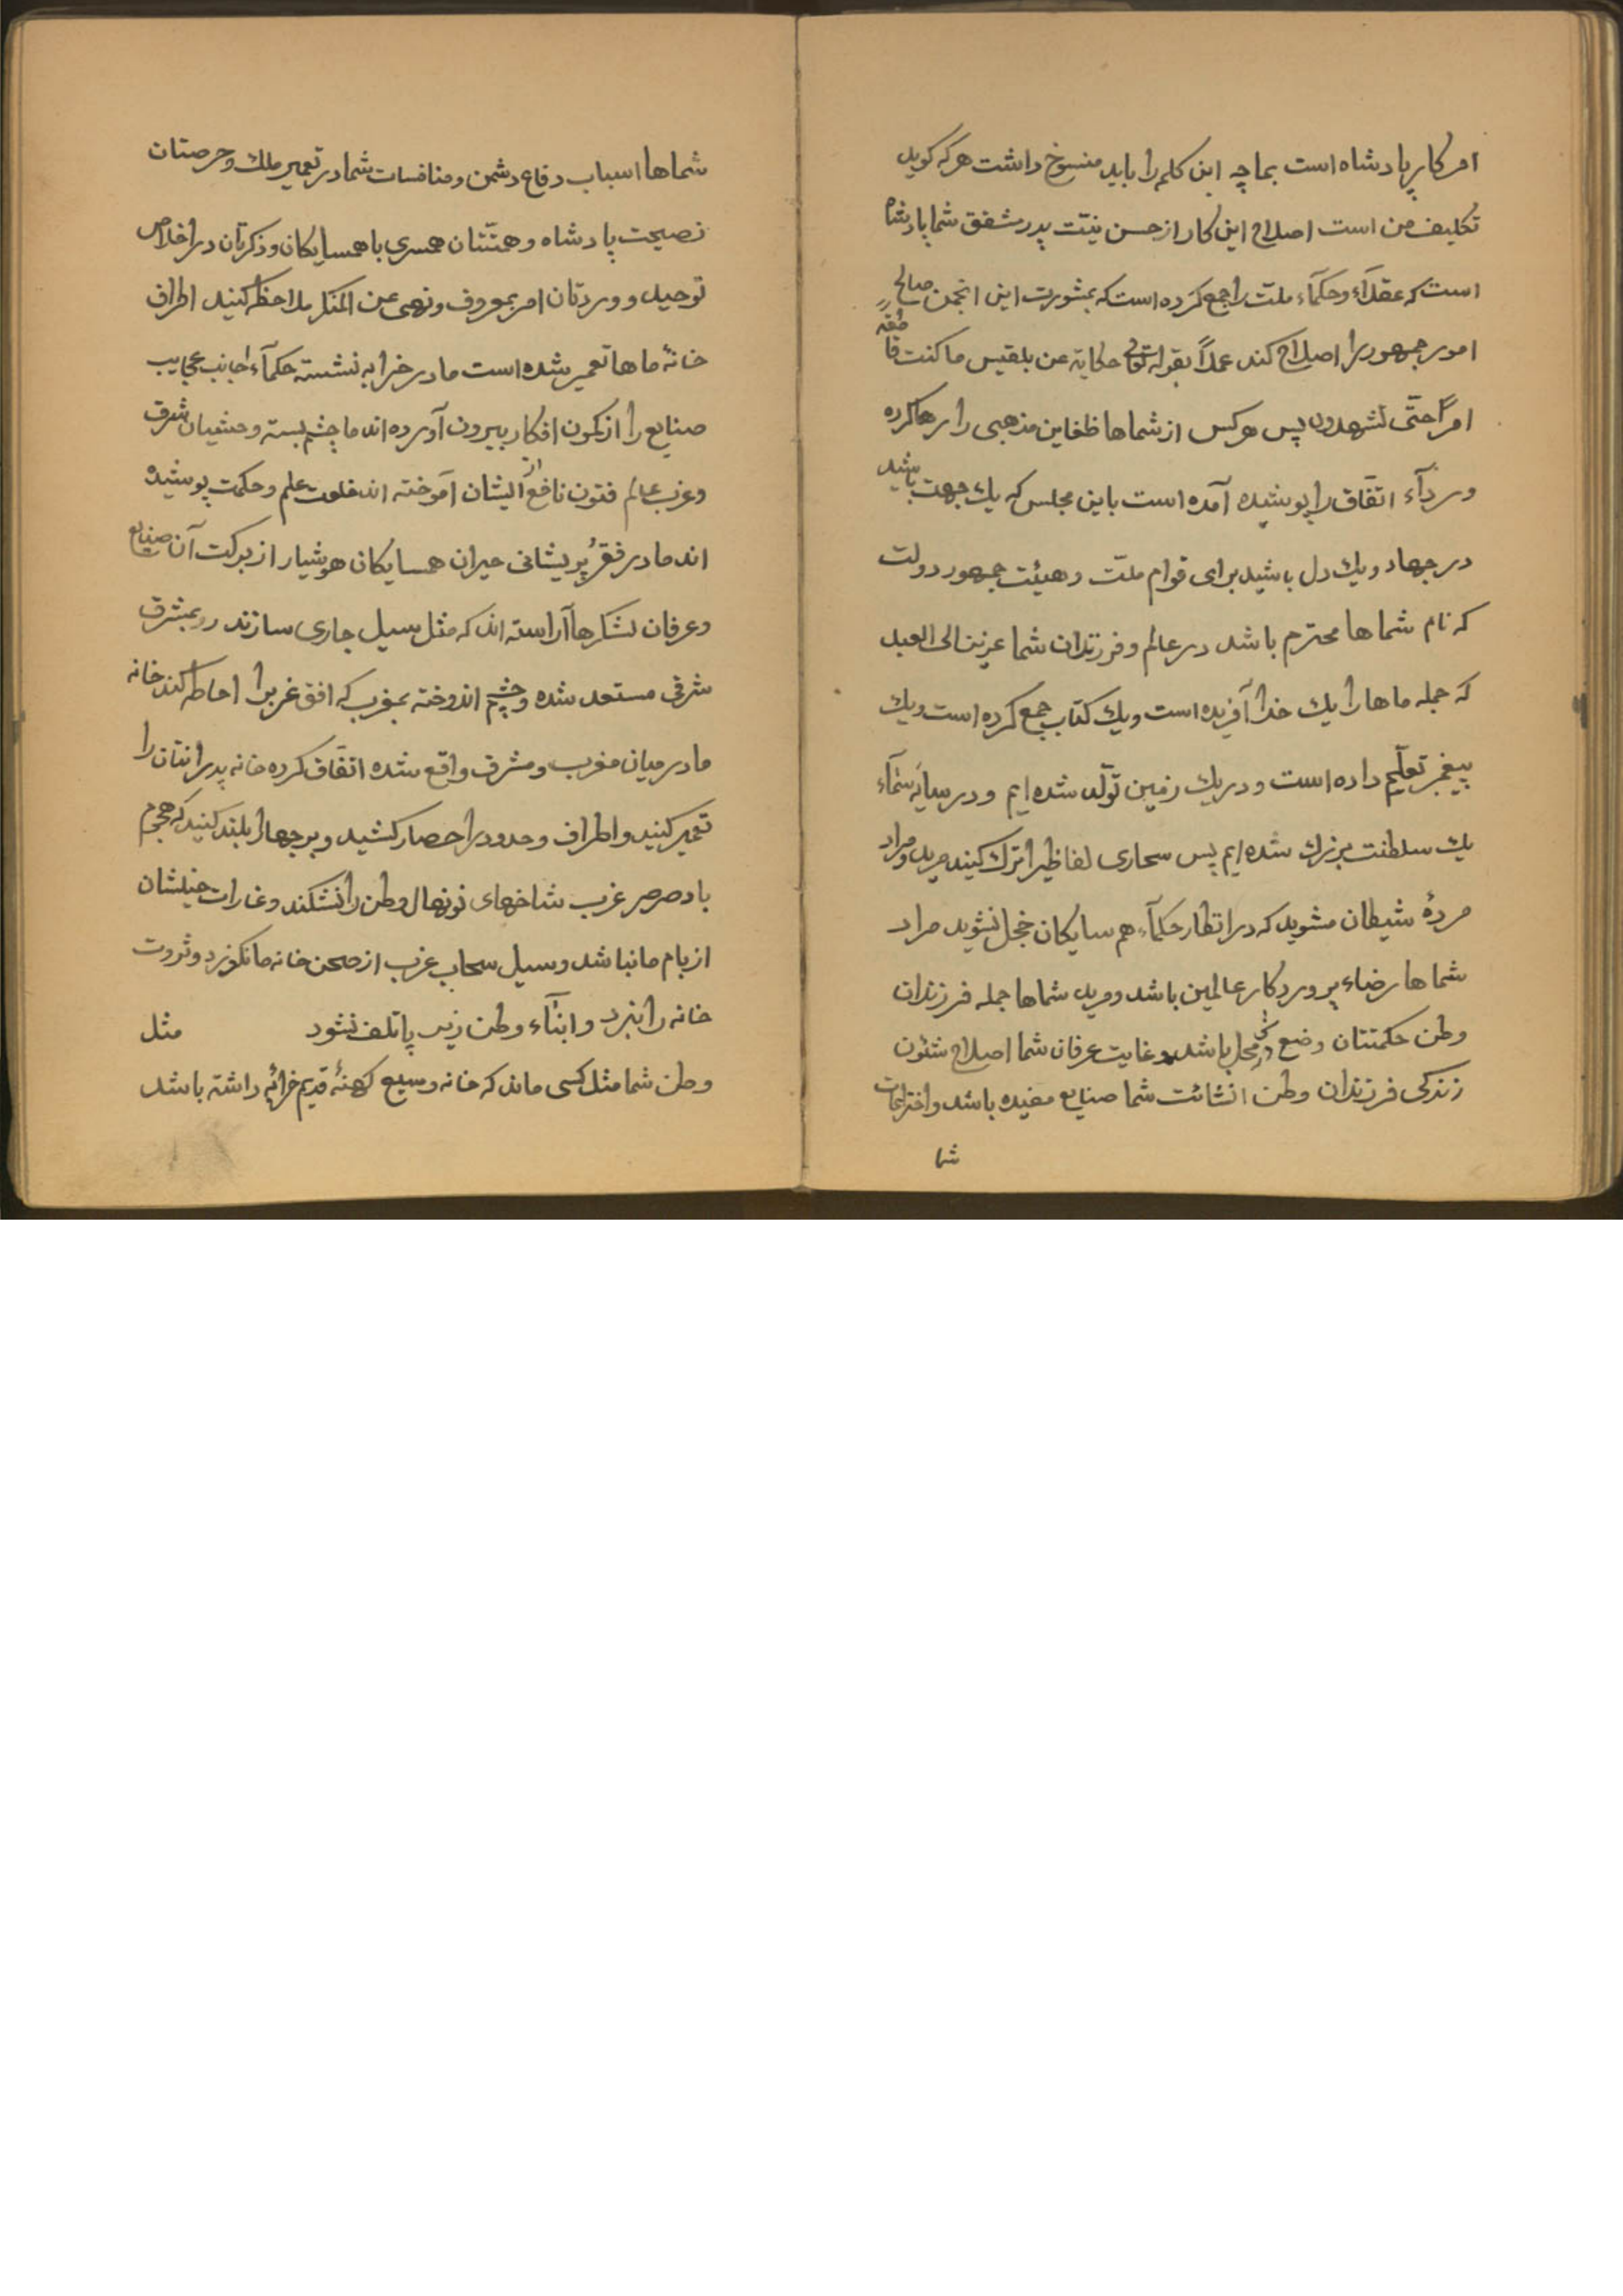 امر کار پادشاه است بماچه این کلمه را باید منسوخ داشت هر که کوید
تکلیف من است اصلاح این کار از حسن نیّت پدر مشفق شما پادشاه
است که عقلآء وحکمآء ملّت را جمع کرده است که بمشورت این انجمن صالح
امور جمهور را اصلاح کند عملاً بقوله تعالی حکایة عن بلقیس ما کنت قاطعة
امراً حتّی تشهدون پس هر کس از شماها ظغاین مذهبی را رها کرده
وردآء اتّفاق را پوشیده آمده است باین مجلس که یك جهت باشید
در جهاد ویك دل باشید برای قوام ملّت وهیئت جمهور دولت
که نام شماها محترم باشد در عالم وفرزندان شما عزیز الی العبد
که جمله ماها را یك خدا آفریده است ویك کتاب جمع کرده است ویك
پیغمبر تعلّیم داده است ودر یك زمین تولّد شده ایم ودر سایه سمآء
یك سلطنت بزرك شده ایم پس سحاری لفاظیرا ترك کنید مرید ومراد
مردهٔ شیطان مشوید که در انظار حکمآء هم سایکان خجل نشوید مراد
شماها رضاء پروردکار عالمین باشد ومرید شماها جمله فرزندان
وطن حکمتتان وضع شیٔ در محل باشد وغایت عرفان شما اصلاح شئون
زندکی فرزندان وطن انشائت شما صنایع مفیده باشد واختراعات
شما
شماها اسباب دفاع دشمن ومنافسات شما در تعمیر ملك وحرصتان
نصیحت پادشاه وهمّتتان همسری با همسایکان وذکرتان در اخلاص
توحید ووردتان امر بمعروف ونهی عن المنکر ملاحظه کنید اطراف
خانهٔ ماها تعمیر شده است ما در خرابه نشسته حکمآء اجانب عجایب
صنایع را از کمون افکار بیرون آورده اند ما چشم بسته وحشیان شرق
وغرب عالم فنون نافع از ایشان آموخته اند خلعت علم وحکمت پوشیده
اند ما در فقر پریشانی حیران همسایکان هوشیار از برکت آن صنایع
وعرفان لشکرها آراسته اند که مثل سیل جاری سازند رو بمشرق
شرقی مستعد شده وچشم اندوخته بمغرب که افق غربرا احاطه کند خانه
ما در میان مغرب ومشرق واقع شده اتّفاق کرده خانه پدرانتان را
تعمیر کنید واطراف وحدود را حصار کشید وبرجها را بلند کنید که هجوم
باد صرصر غرب شاخهای نونهال وطن را نشکند وغارات جیلشان
از بام ما نباشد وسیل سحاب غرب از صحن خانه ما نکذرد وثروت
خانه را نبرد وابنآء وطن زیر پا تلف نشود مثل
وطن شما مثل کسی ماند که خانه وسیع کهنهٔ قدیم خرابهٔ داشته باشد